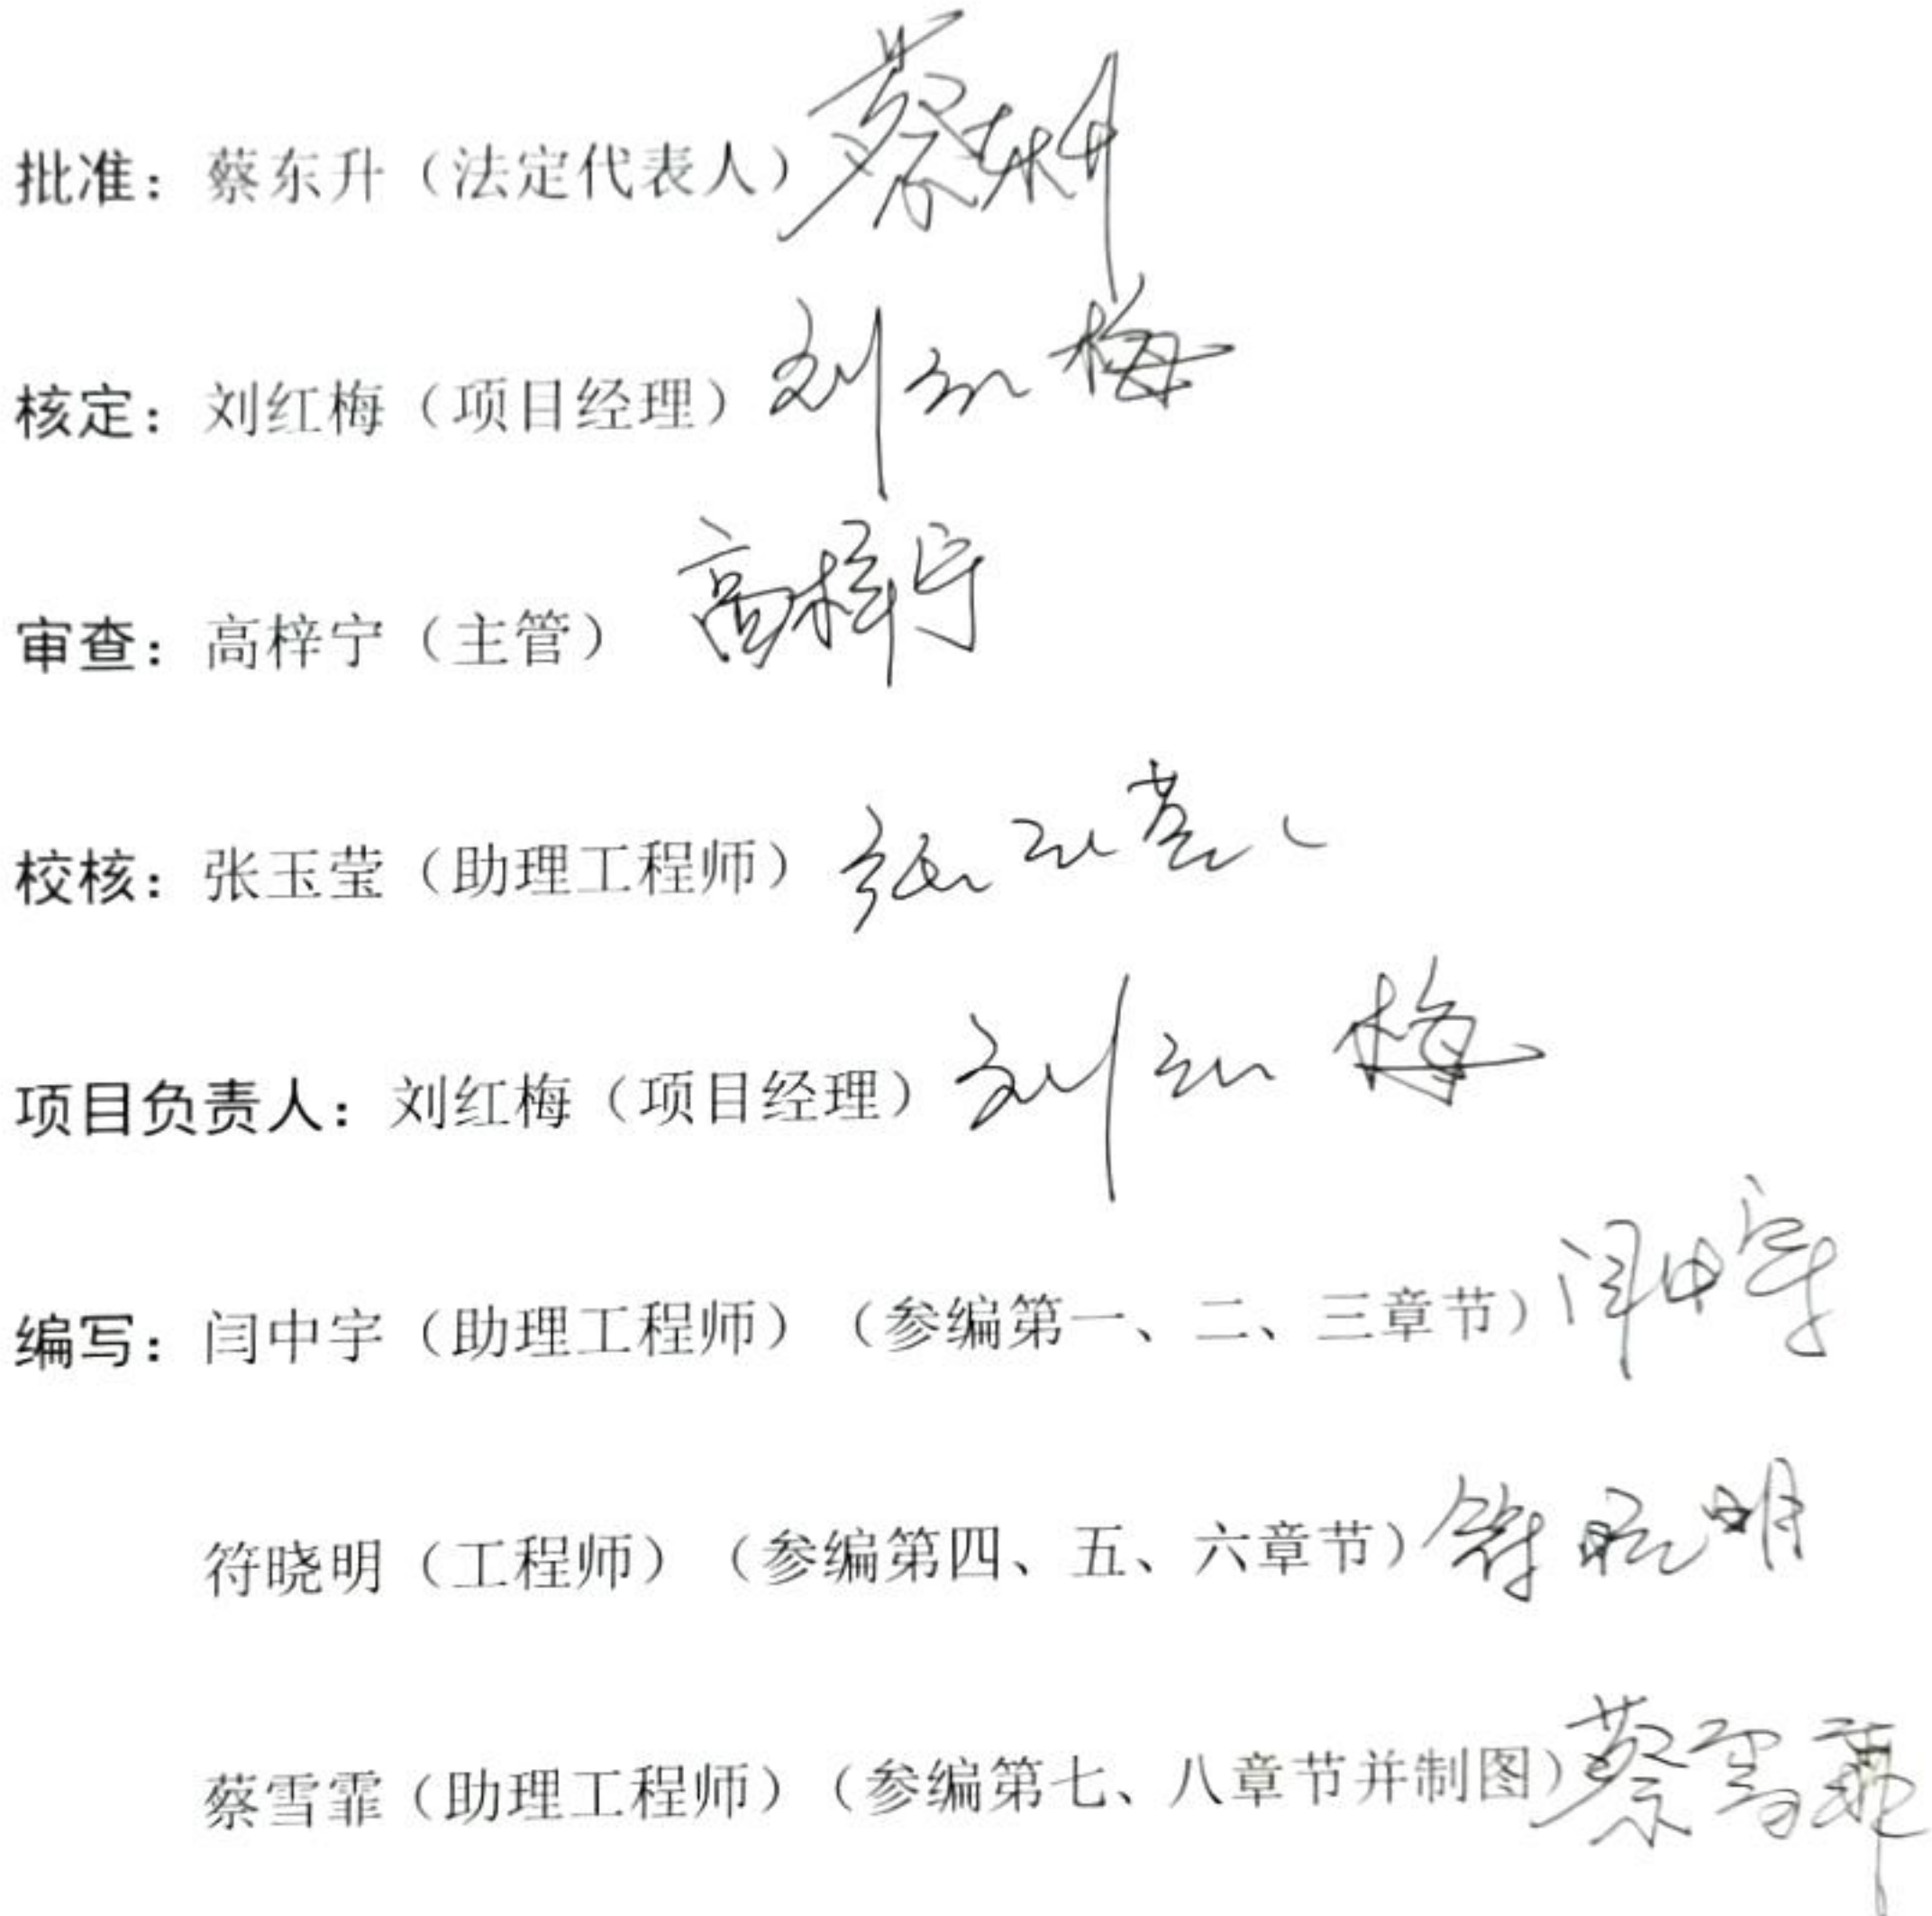 批准：蔡东升（法定代表人）蔡东升
核定：刘红梅（项目经理）刘红梅
审查：高梓宁（主管）高梓宁
校核：张玉莹（助理工程师）张玉莹
项目负责人：刘红梅（项目经理）刘红梅
编写：闫中宇（助理工程师）（参编第一、二、三章节）闫中宇
符晓明（工程师）（参编第四、五、六章节）符晓明
蔡雪霏（助理工程师）（参编第七、八章节并制图）蔡雪霏